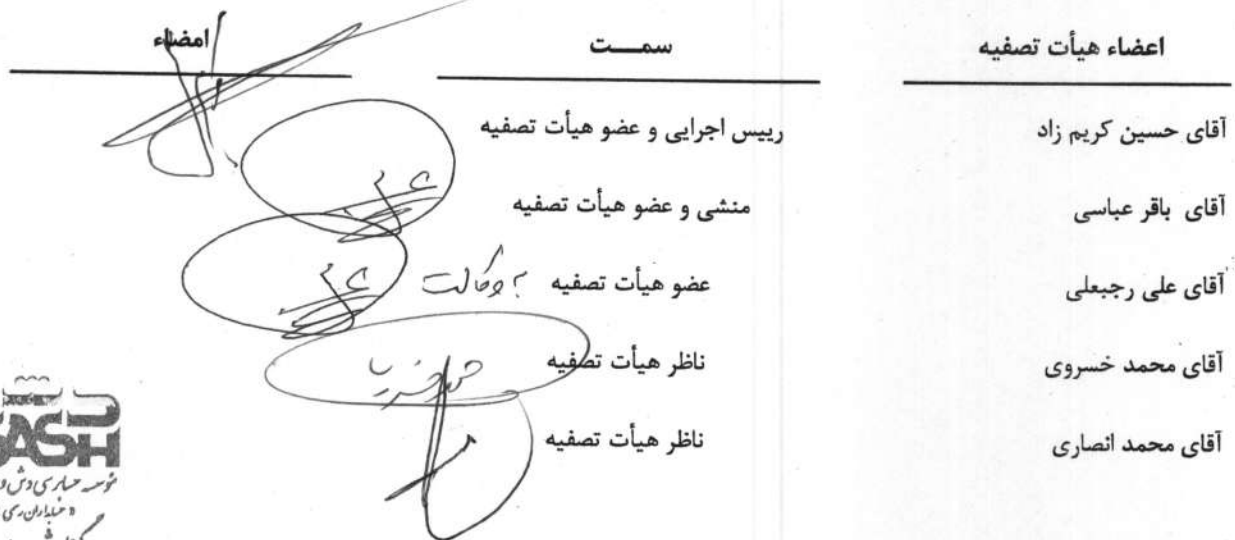 اعضاء هیأت تصفیه سمت امضاء
آقای حسین کریم زاد رییس اجرایی و عضو هیأت تصفیه
آقای باقر عباسی منشی و عضو هیأت تصفیه
آقای علی رجبعلی عضو هیأت تصفیه به وکالت
آقای محمد خسروی ناظر هیأت تصفیه
آقای محمد انصاری ناظر هیأت تصفیه
موسسه حسابرسی